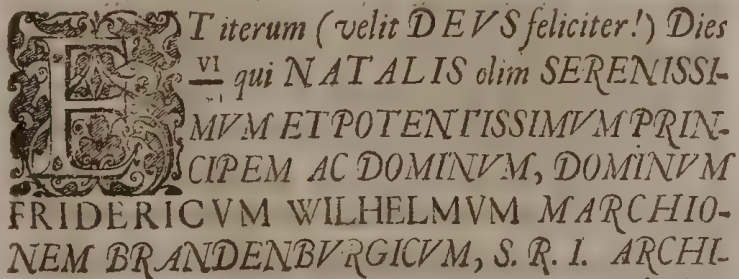 ET iterum (velit DEVS feliciter!) Dies
VI qui NATALIS olim SERENISSI-
MVM ET POTENTISSIMVM PRIN-
CIPEM AC DOMINVM, DOMINVM
FRIDERICVM WILHELMVM MARCHIO-
NEM BRANDENBVRGICVM, S. R. I. ARCHI-